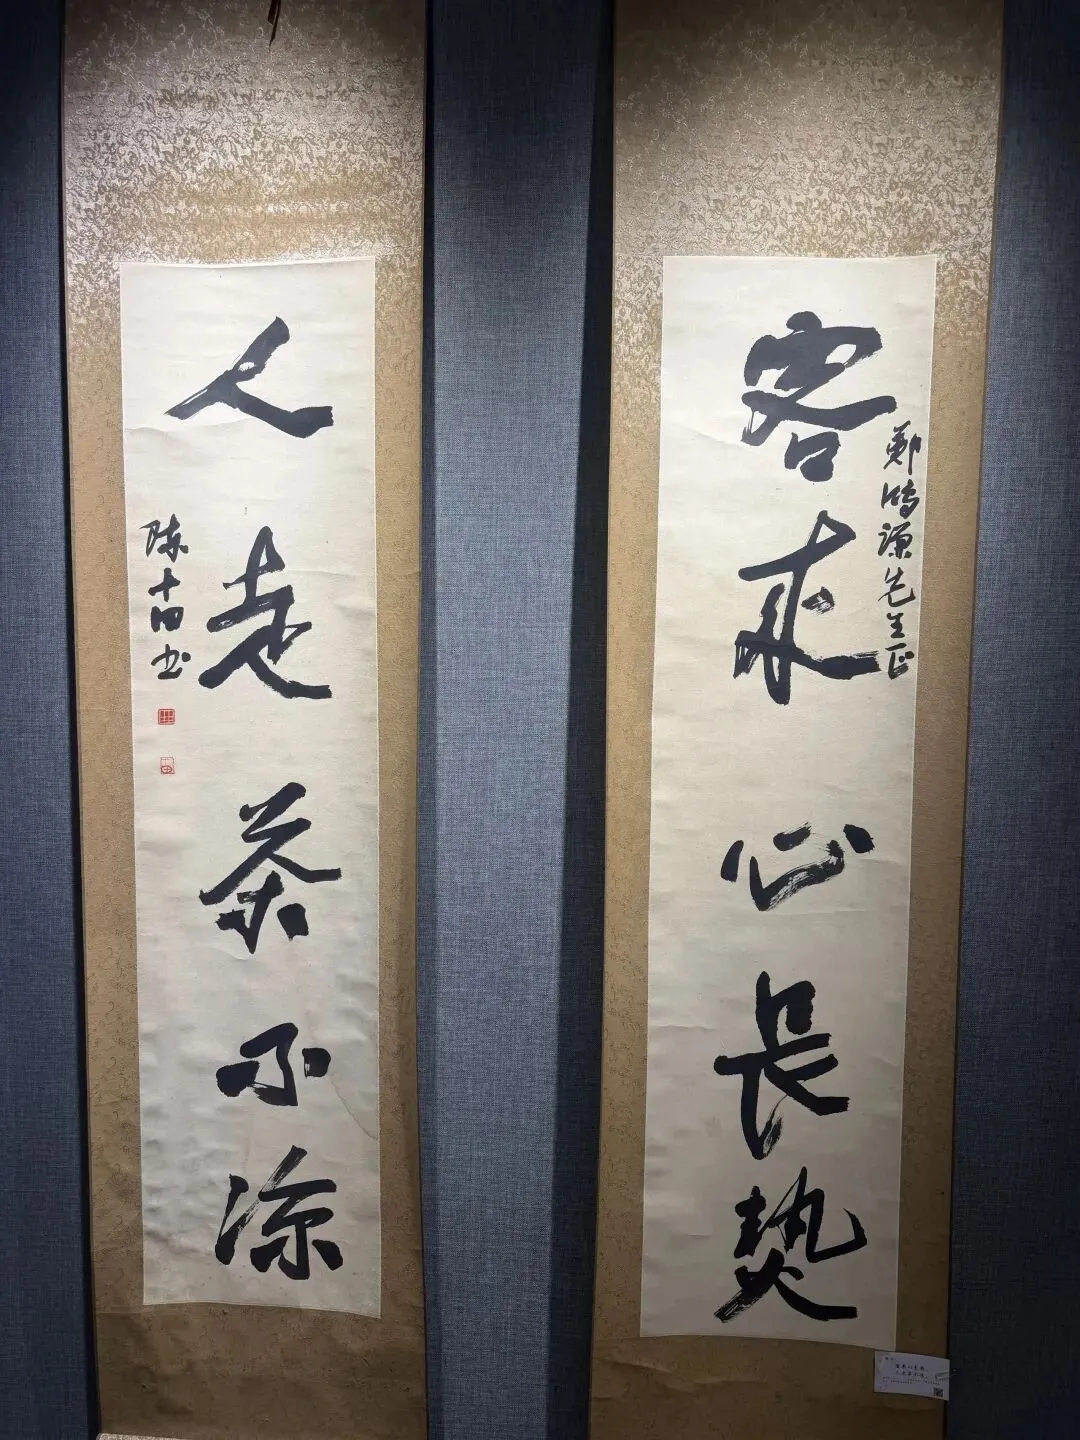 客来心长热
郑鸿源先生正
人走茶不凉
陈十田书